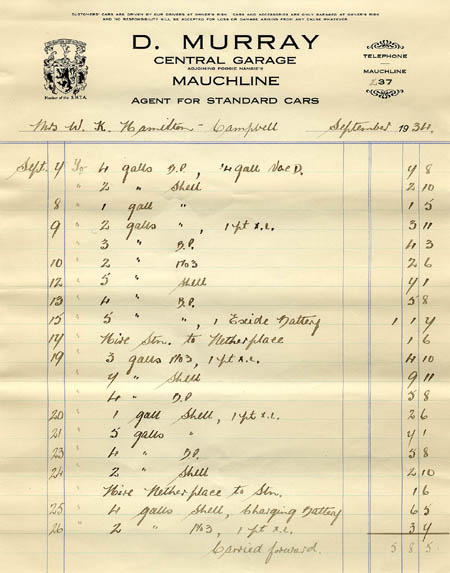 CUSTOMERS' CARS ARE DRIVEN BY OUR DRIVERS AT OWNER'S RISK. CARS AND ACCESSORIES ARE ONLY GARAGED AT OWNER'S RISK
AND NO RESPONSIBILITY WILL BE ACCEPTED FOR LOSS OR DAMAGE ARISING FROM ANY CAUSE WHATEVER
D. MURRAY
CENTRAL GARAGE
ADJOINING POOSIE NANSIE'S
MAUCHLINE
AGENT FOR STANDARD CARS
Member of the S.M.T.A.
TELEPHONE
MAUCHLINE
37
Mrs W. K. Hamilton-Campbell September 1934.
Sept. 4 To 4 galls D.P., ¼ gall Vac D. 4 8
" 2 " Shell 2 10
8 " 1 gall " 1 5
9 " 2 galls ", 1 pt x.l. 3 11
" 3 " D.P. 4 3
10 " 2 " No3 2 6
12 " 5 " Shell 4 1
13 " 4 " D.P. 5 8
15 " 5 " ", 1 Exide Battery 1 1 4
14 " Hire Stn. to Netherplace 1 6
19 " 3 galls No3, 1 pt x.l. 4 10
" 4 " Shell 9 11
" 4 " D.P. 5 8
20 " 1 gall Shell, 1 pt x.l. 2 6
21 " 5 galls " 4 1
23 " 4 " D.P. 5 8
24 " 2 " Shell 2 10
" Hire Netherplace to Stn. 1 6
25 " 4 galls Shell, Charging Battery 6 5
26 " 2 " No3, 1 pt x.l. 3 4
Carried forward. 5 8 5